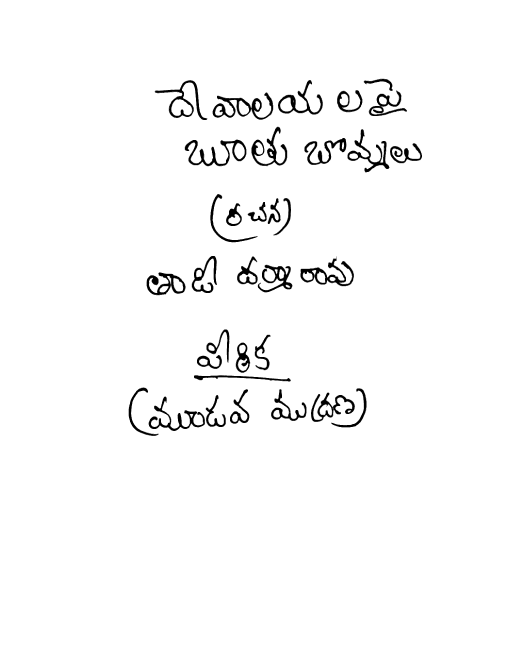 దేవాలయ లపై
బూతు బొమ్మలు
(రచన)
తాపీ ధర్మారావు
పీఠిక
(మూడవ ముద్రణ)